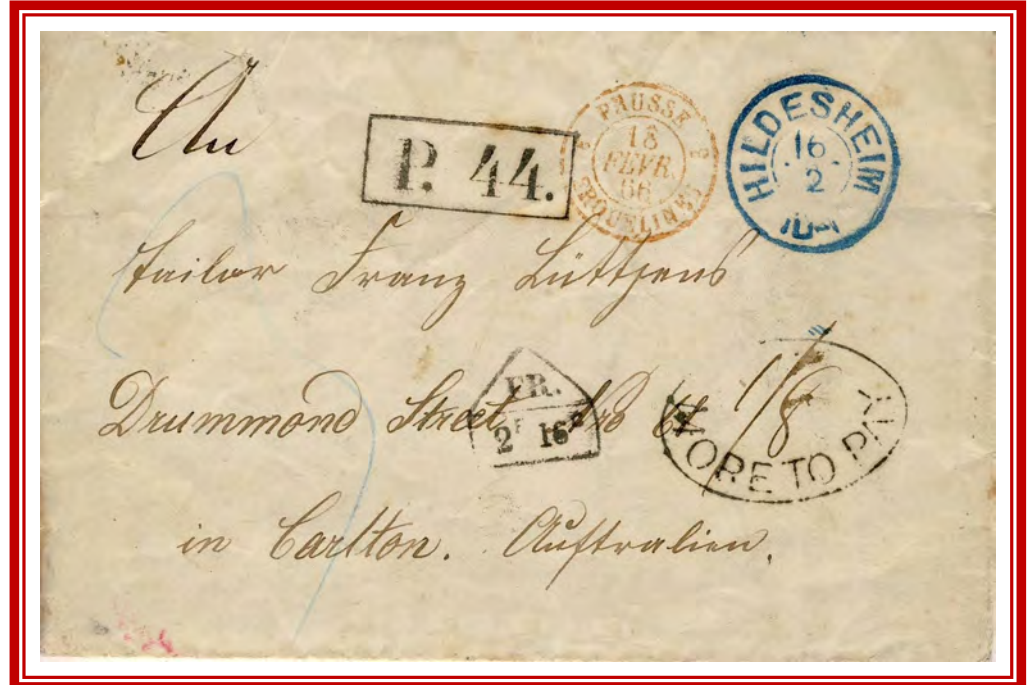 An
P. 44.
PRUSSE
18
FEVR.
66
ERQUELINES
HILDESHEIM
16
2
10-11
tailor Franz Lüttgens
FR.
2F 16c
Drummond Street No 64
1/8
MORE TO PAY
in Carlton. Australien.